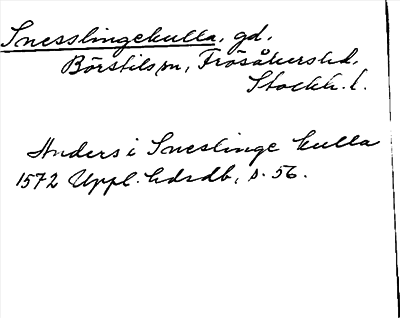 Snesslingekulla, gd.
Börstils sn, Frösåkers hd,
Stockh. l.
Anders i Sneslinge kulla
1572 Uppl. hdrdb, s. 56.